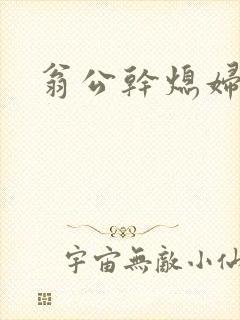 翁公幹熄婦
宇宙無敵小仙